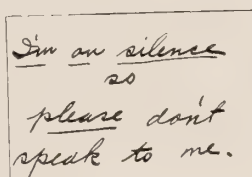 I'm on silence
so
please don't
speak to me.